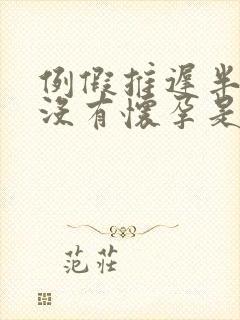 例假推遲半
沒有懷孕是
范莊